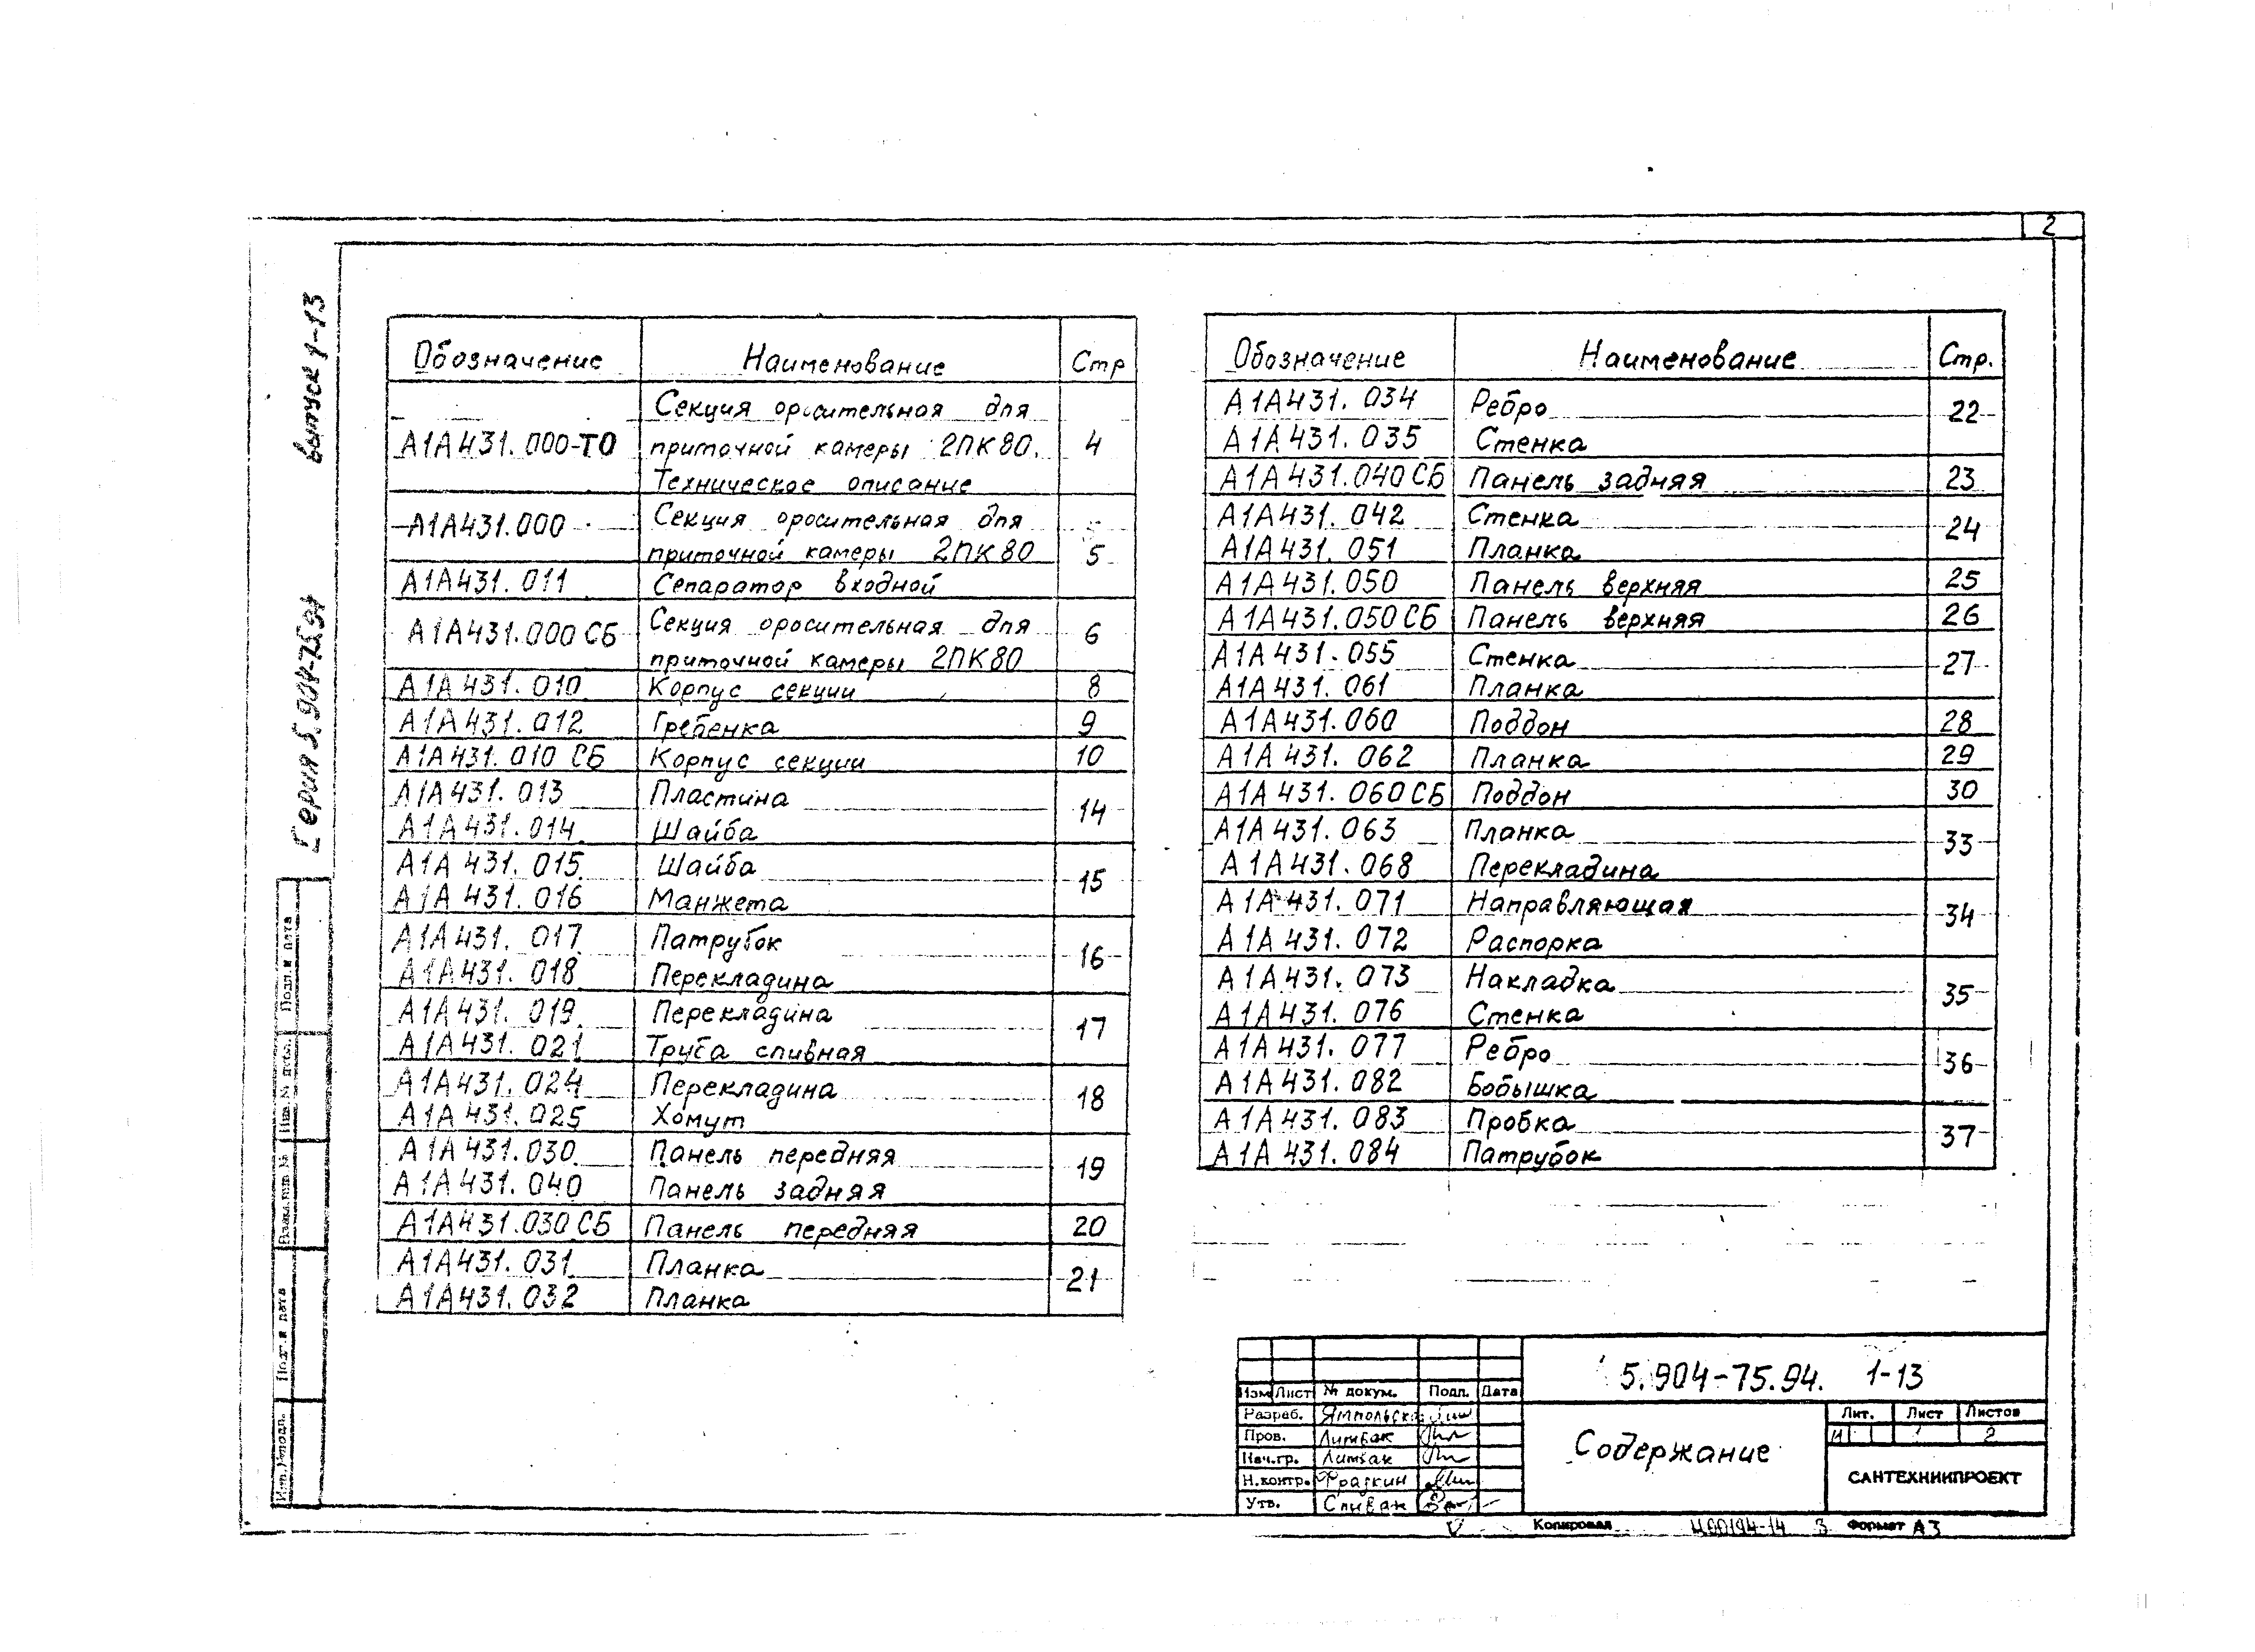 2
Серия 5.904-75.94 выпуск 1-13
Обозначение Наименование Стр
А1А431.000-ТО Секция оросительная для 4
приточной камеры 2ПК80.
Техническое описание
А1А431.000 Секция оросительная для 5
приточной камеры 2ПК80
А1А431.011 Сепаратор входной
А1А431.000 СБ Секция оросительная для 6
приточной камеры 2ПК80
А1А431.010 Корпус секции 8
А1А431.012 Гребенка 9
А1А431.010 СБ Корпус секции 10
А1А431.013 Пластина 14
А1А431.014 Шайба
А1А431.015 Шайба 15
А1А431.016 Манжета
А1А431.017 Патрубок 16
А1А431.018 Перекладина
А1А431.019 Перекладина 17
А1А431.021 Труба сливная
А1А431.024 Перекладина 18
А1А431.025 Хомут
А1А431.030 Панель передняя 19
А1А431.040 Панель задняя
А1А431.030 СБ Панель передняя 20
А1А431.031 Планка 21
А1А431.032 Планка
Обозначение Наименование Стр.
А1А431.034 Ребро 22
А1А431.035 Стенка
А1А431.040 СБ Панель задняя 23
А1А431.042 Стенка 24
А1А431.051 Планка
А1А431.050 Панель верхняя 25
А1А431.050 СБ Панель верхняя 26
А1А431.055 Стенка 27
А1А431.061 Планка
А1А431.060 Поддон 28
А1А431.062 Планка 29
А1А431.060 СБ Поддон 30
А1А431.063 Планка 33
А1А431.068 Перекладина
А1А431.071 Направляющая 34
А1А431.072 Распорка
А1А431.073 Накладка 35
А1А431.076 Стенка
А1А431.077 Ребро 36
А1А431.082 Бобышка
А1А431.083 Пробка 37
А1А431.084 Патрубок
Подп. и дата
Инв. № дубл.
Взам. инв. №
Подп. и дата
Инв. № подл.
5.904-75.94. 1-13
Изм Лист № докум. Подп. Дата
Разраб.
Пров. Литвак
Нач.гр. Литвак
Н.контр. Фрайкин
Утв. Спивак
Содержание
Лит. Лист Листов
И 1 2
САНТЕХНИИПРОЕКТ
Копировал Ц00194-14 3 Формат А3